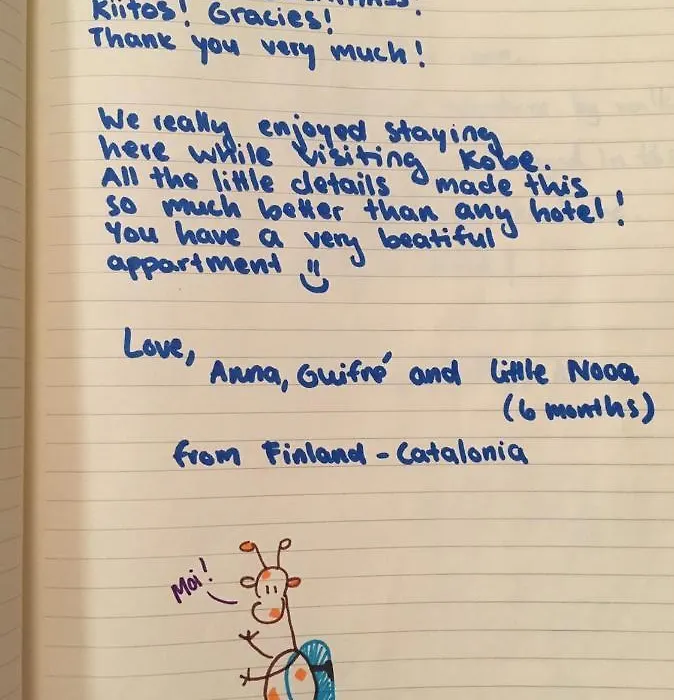 Kiitos! Gracies!
Thank you very much!
We really enjoyed staying
here while visiting Kobe.
All the little details made this
so much better than any hotel!
You have a very beatiful
appartment
Love,
Anna, Guifré and little Nooa
(6 months)
from Finland - Catalonia
Moi!